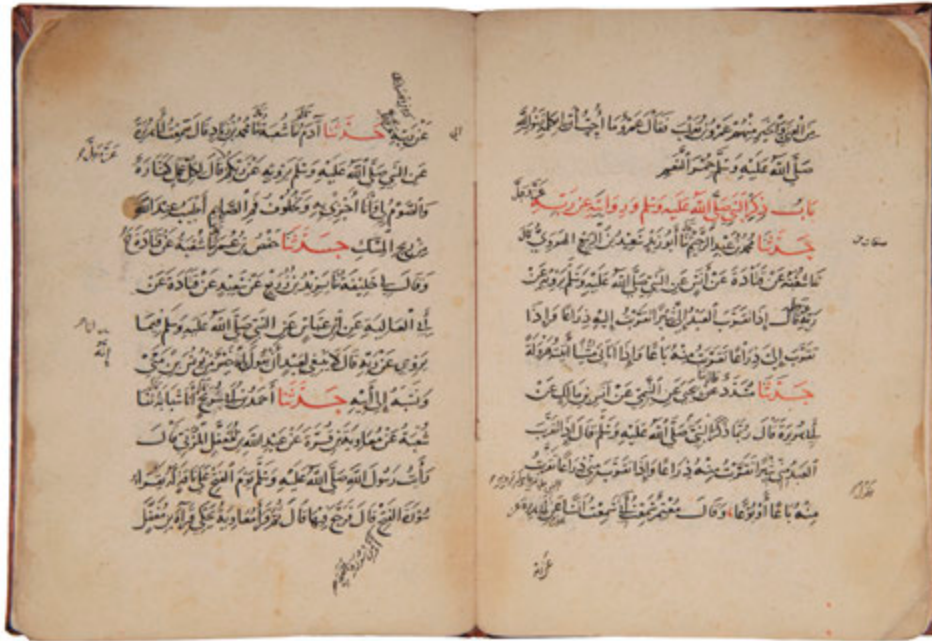 من الغنى والخير منهم عمرو بن تغلب فقال عمرو ما أحب أن لي بكلمة رسول الله
صلى الله عليه وسلم حمر النعم
باب ذكر النبي صلى الله عليه وسلم وروايته عن ربه عز وجل
حدثنا محمد بن عبد الرحيم ثنا أبو زيد سعيد بن الربيع الهروي قال
ثنا شعبة عن قتادة عن أنس عن النبي صلى الله عليه وسلم يرويه عن
ربه قال إذا تقرب العبد إلي شبرا تقربت إليه ذراعا وإذا
تقرب إلي ذراعا تقربت منه باعا وإذا أتاني مشيا أتيته هرولة
حدثنا مسدد عن يحيى عن التيمي عن أنس بن مالك عن
أبي هريرة قال ربما ذكر النبي صلى الله عليه وسلم قال إذا تقرب
العبد مني شبرا تقربت منه ذراعا وإذا تقرب مني ذراعا تقربت
منه باعا أو بوعا وقال معتمر سمعت أبي سمعت أنسا عن
عن ربه حدثنا آدم ثنا شعبة ثنا محمد بن زياد قال سمعت أبا هريرة
عن النبي صلى الله عليه وسلم يرويه عن ربكم قال لكل عمل كفارة
والصوم لي وأنا أجزي به ولخلوف فم الصايم أطيب عند الله
من ريح المسك حدثنا حفص بن عمر ثنا شعبة عن قتادة ح
وقال لي خليفة ثنا يزيد بن زريع عن سعيد عن قتادة عن
أبي العالية عن ابن عباس عن النبي صلى الله عليه وسلم فيما
يروي عن ربه قال لا ينبغي لعبد أن يقول أنه خير من يونس بن متى
ونسبه إلى أبيه حدثنا أحمد بن أبي سريج أنا شبابة ثنا
شعبة عن معاوية بن قرة عن عبد الله بن المغفل المزني قال
رأيت رسول الله صلى الله عليه وسلم يوم الفتح على ناقة له يقرأ
سورة الفتح قال فرجع فيها قال ثم قرأ معاوية يحكي قراءة بن مغفل